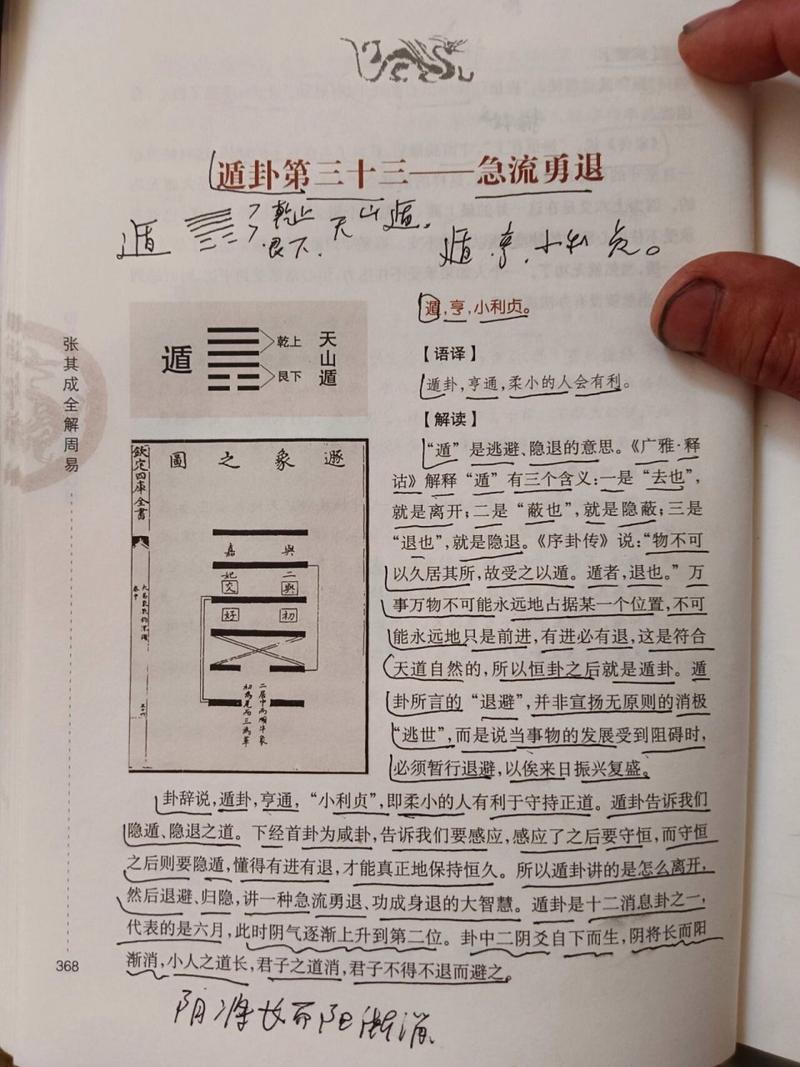 遁卦第三十三——急流勇退
遁 乾上 天山遁。
艮下
遁.亨.小利贞。
遁
乾上
艮下
天山遁
遁,亨,小利贞。
【语译】
遁卦,亨通,柔小的人会有利。
【解读】
“遁”是逃避、隐退的意思。《广雅·释
诂》解释“遁”有三个含义:一是“去也”,
就是离开;二是“蔽也”,就是隐蔽;三是
“退也”,就是隐退。《序卦传》说:“物不可
以久居其所,故受之以遁。遁者,退也。”万
事万物不可能永远地占据某一个位置,不可
能永远地只是前进,有进必有退,这是符合
天道自然的,所以恒卦之后就是遁卦。遁
卦所言的“退避”,并非宣扬无原则的消极
“逃世”,而是说当事物的发展受到阻碍时,
必须暂行退避,以俟来日振兴复盛。
圖之象遯
欽定四庫全書
嘉 與
妃 二
交 與
好 初
二居中為順牛象
卦辞说,遁卦,亨通,“小利贞”,即柔小的人有利于守持正道。遁卦告诉我们
隐遁、隐退之道。下经首卦为咸卦,告诉我们要感应,感应了之后要守恒,而守恒
之后则要隐遁,懂得有进有退,才能真正地保持恒久。所以遁卦讲的是怎么离开,
然后退避、归隐,讲一种急流勇退、功成身退的大智慧。遁卦是十二消息卦之一,
代表的是六月,此时阴气逐渐上升到第二位。卦中二阴爻自下而生,阴将长而阳
渐消,小人之道长,君子之道消,君子不得不退而避之。
阴渐长而阳渐消.
张其成全解周易
368